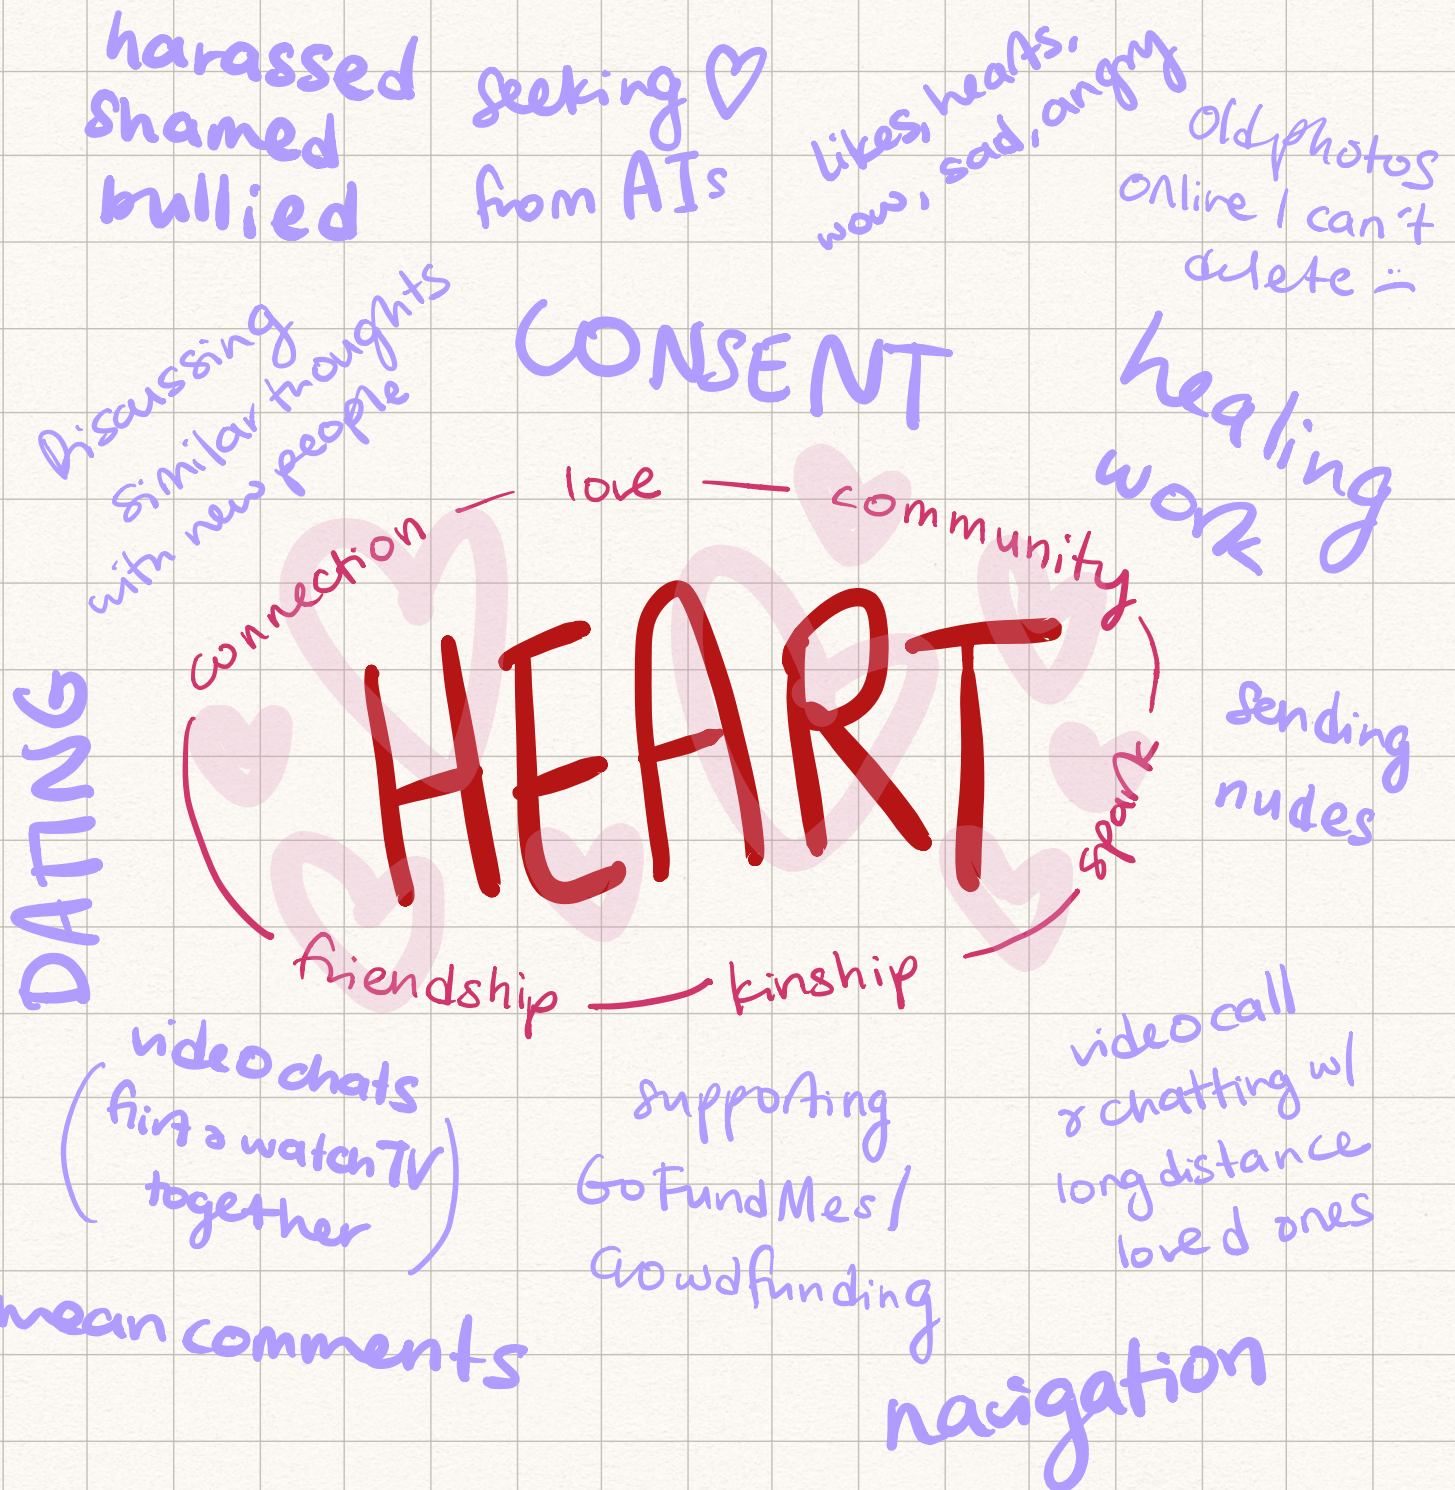 harassed
shamed
bullied
seeking ♡
from AIs
likes, hearts,
wow, sad, angry
Old photos
online I can't
delete :(
Discussing
similar thoughts
with new people
CONSENT
healing
work
connection
love
community
spark
kinship
friendship
HEART
DATING
sending
nudes
video chats
(flirt & watch TV
together)
supporting
GoFundMes/
Crowdfunding
video call
& chatting w/
long distance
loved ones
mean comments
navigation